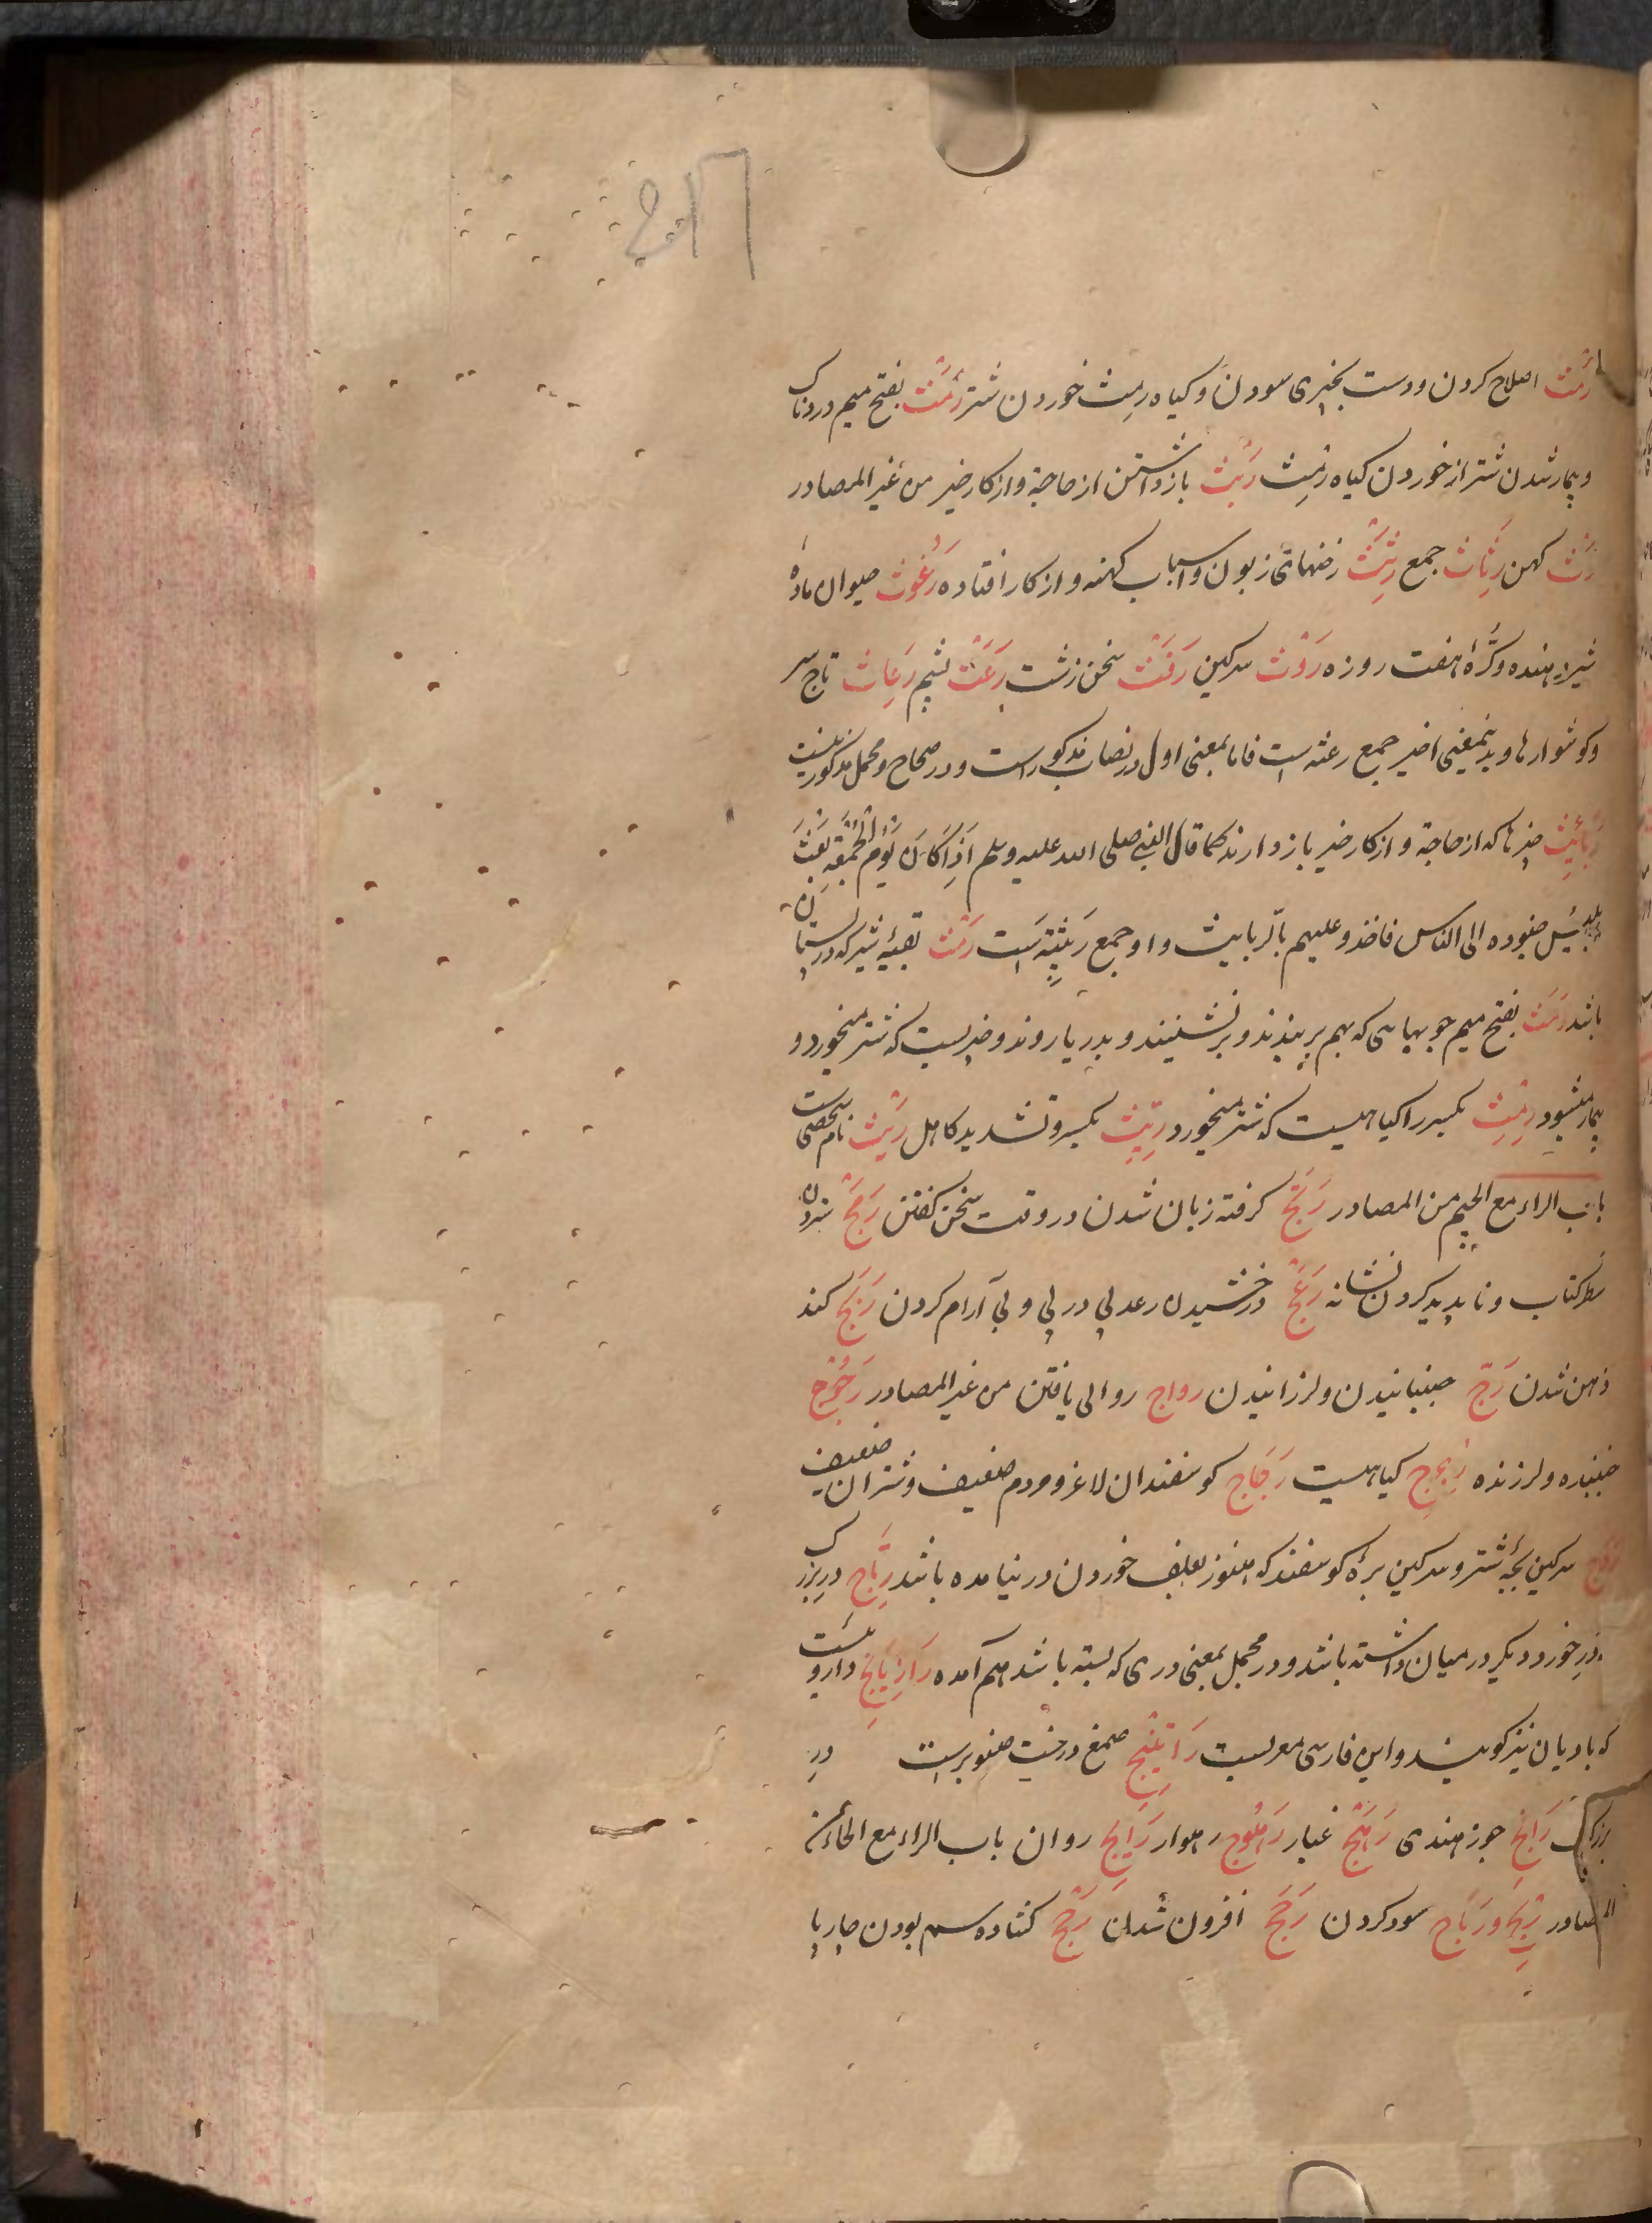 رَمْث اصلاح کردن و دست بچیزی سودن و کیاه رمث خوردن شتر رَمَث بفتح میم دردناک
و بیمار شدن شتر از خوردن کیاه رِمْث رَبْث باز داشتن از حاجة و از کار خیر من غیر المصادر
رَثّ کهن رِثَاث جمع رِثَّث رختهای زبون و اسباب کهنه و از کار افتاده رَغُوث حیوان ماده
شیر دهنده و کُرّهٔ هفت روزه رَوْث سرکین رَفَث سخن زشت رَعَث پشم رِعَاث تاج سر
و کوشوارها و بدینمعنی اخیر جمع رعثه است فاما بمعنی اول در نصاب مذکور است و در صحاح و مجمل مذکور نیست
رَبَائِث چیزها که از حاجة و از کار خیر باز دارند کما قال النبی صلی الله علیه وسلم اِذَا کَانَ یَوْمُ الْجُمُعَةِ بَعَثَ
اِبْلِیْس جنوده الی الناس فاخذو علیهم بالربایث و او جمع رَبِیْثَة است رَمَث بقیهٔ شیر که در پستان
باشد رَمَث بفتح میم چوبهایی که بهم بربندند و برنشینند و بدریا روند و چیزیست که شتر میخورد و
بیمار میشود رِمْث بکسر را کیاهیست که شتر میخورد رِیِّث بکسر و تشدید کاهل رَیْث نام شخصی است
باب الراء مع الجیم من المصادر رَتَج کرفته زبان شدن در وقت سخن کفتن رَمْج ستردن
سطر کتاب و ناپدید کردن نشانه رَعْج درخشیدن رعد پی در پی و بی آرام کردن رَبَج کند
ذهن شدن رَجّ جنبانیدن و لرزانیدن رواج روایی یافتن من غیر المصادر رَجُوْج
جنبنده و لرزنده کیاهیست رَجَاج کوسفندان لاغر و مردم ضعیف و شتران ضعیف
رَدَج سرکین بچهٔ شتر و سرکین برهٔ کوسفند که هنوز بعلف خوردن در نیامده باشد رِتَاج در بزرک
در خورد دیکر در میان داشته باشد و در مجمل بمعنی دری که بسته باشد هم آمده رَازِیَانِج داروییست
که بادیان نیز کویند و این فارسی معربست رَاتِیْنَج صمغ درخت صنوبر است در
بزرک رَانِج جوز هندی رَهْج غبار رَهْوج رهوار رَایِج روان باب الراء مع الحاء من
المصادر رِبْح و رَبَاح سود کردن رَجَح افزون شدن رَحَح کشاده سم بودن چارپا